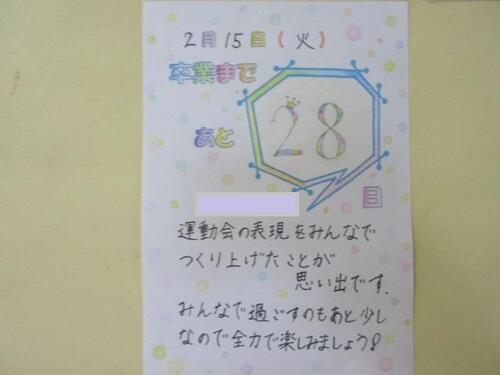 2月15日(火)
卒業まで
あと 28 日
運動会の表現をみんなで
つくり上げたことが
思い出です.
みんなで過ごすのもあと少し
なので全力で楽しみましょう!